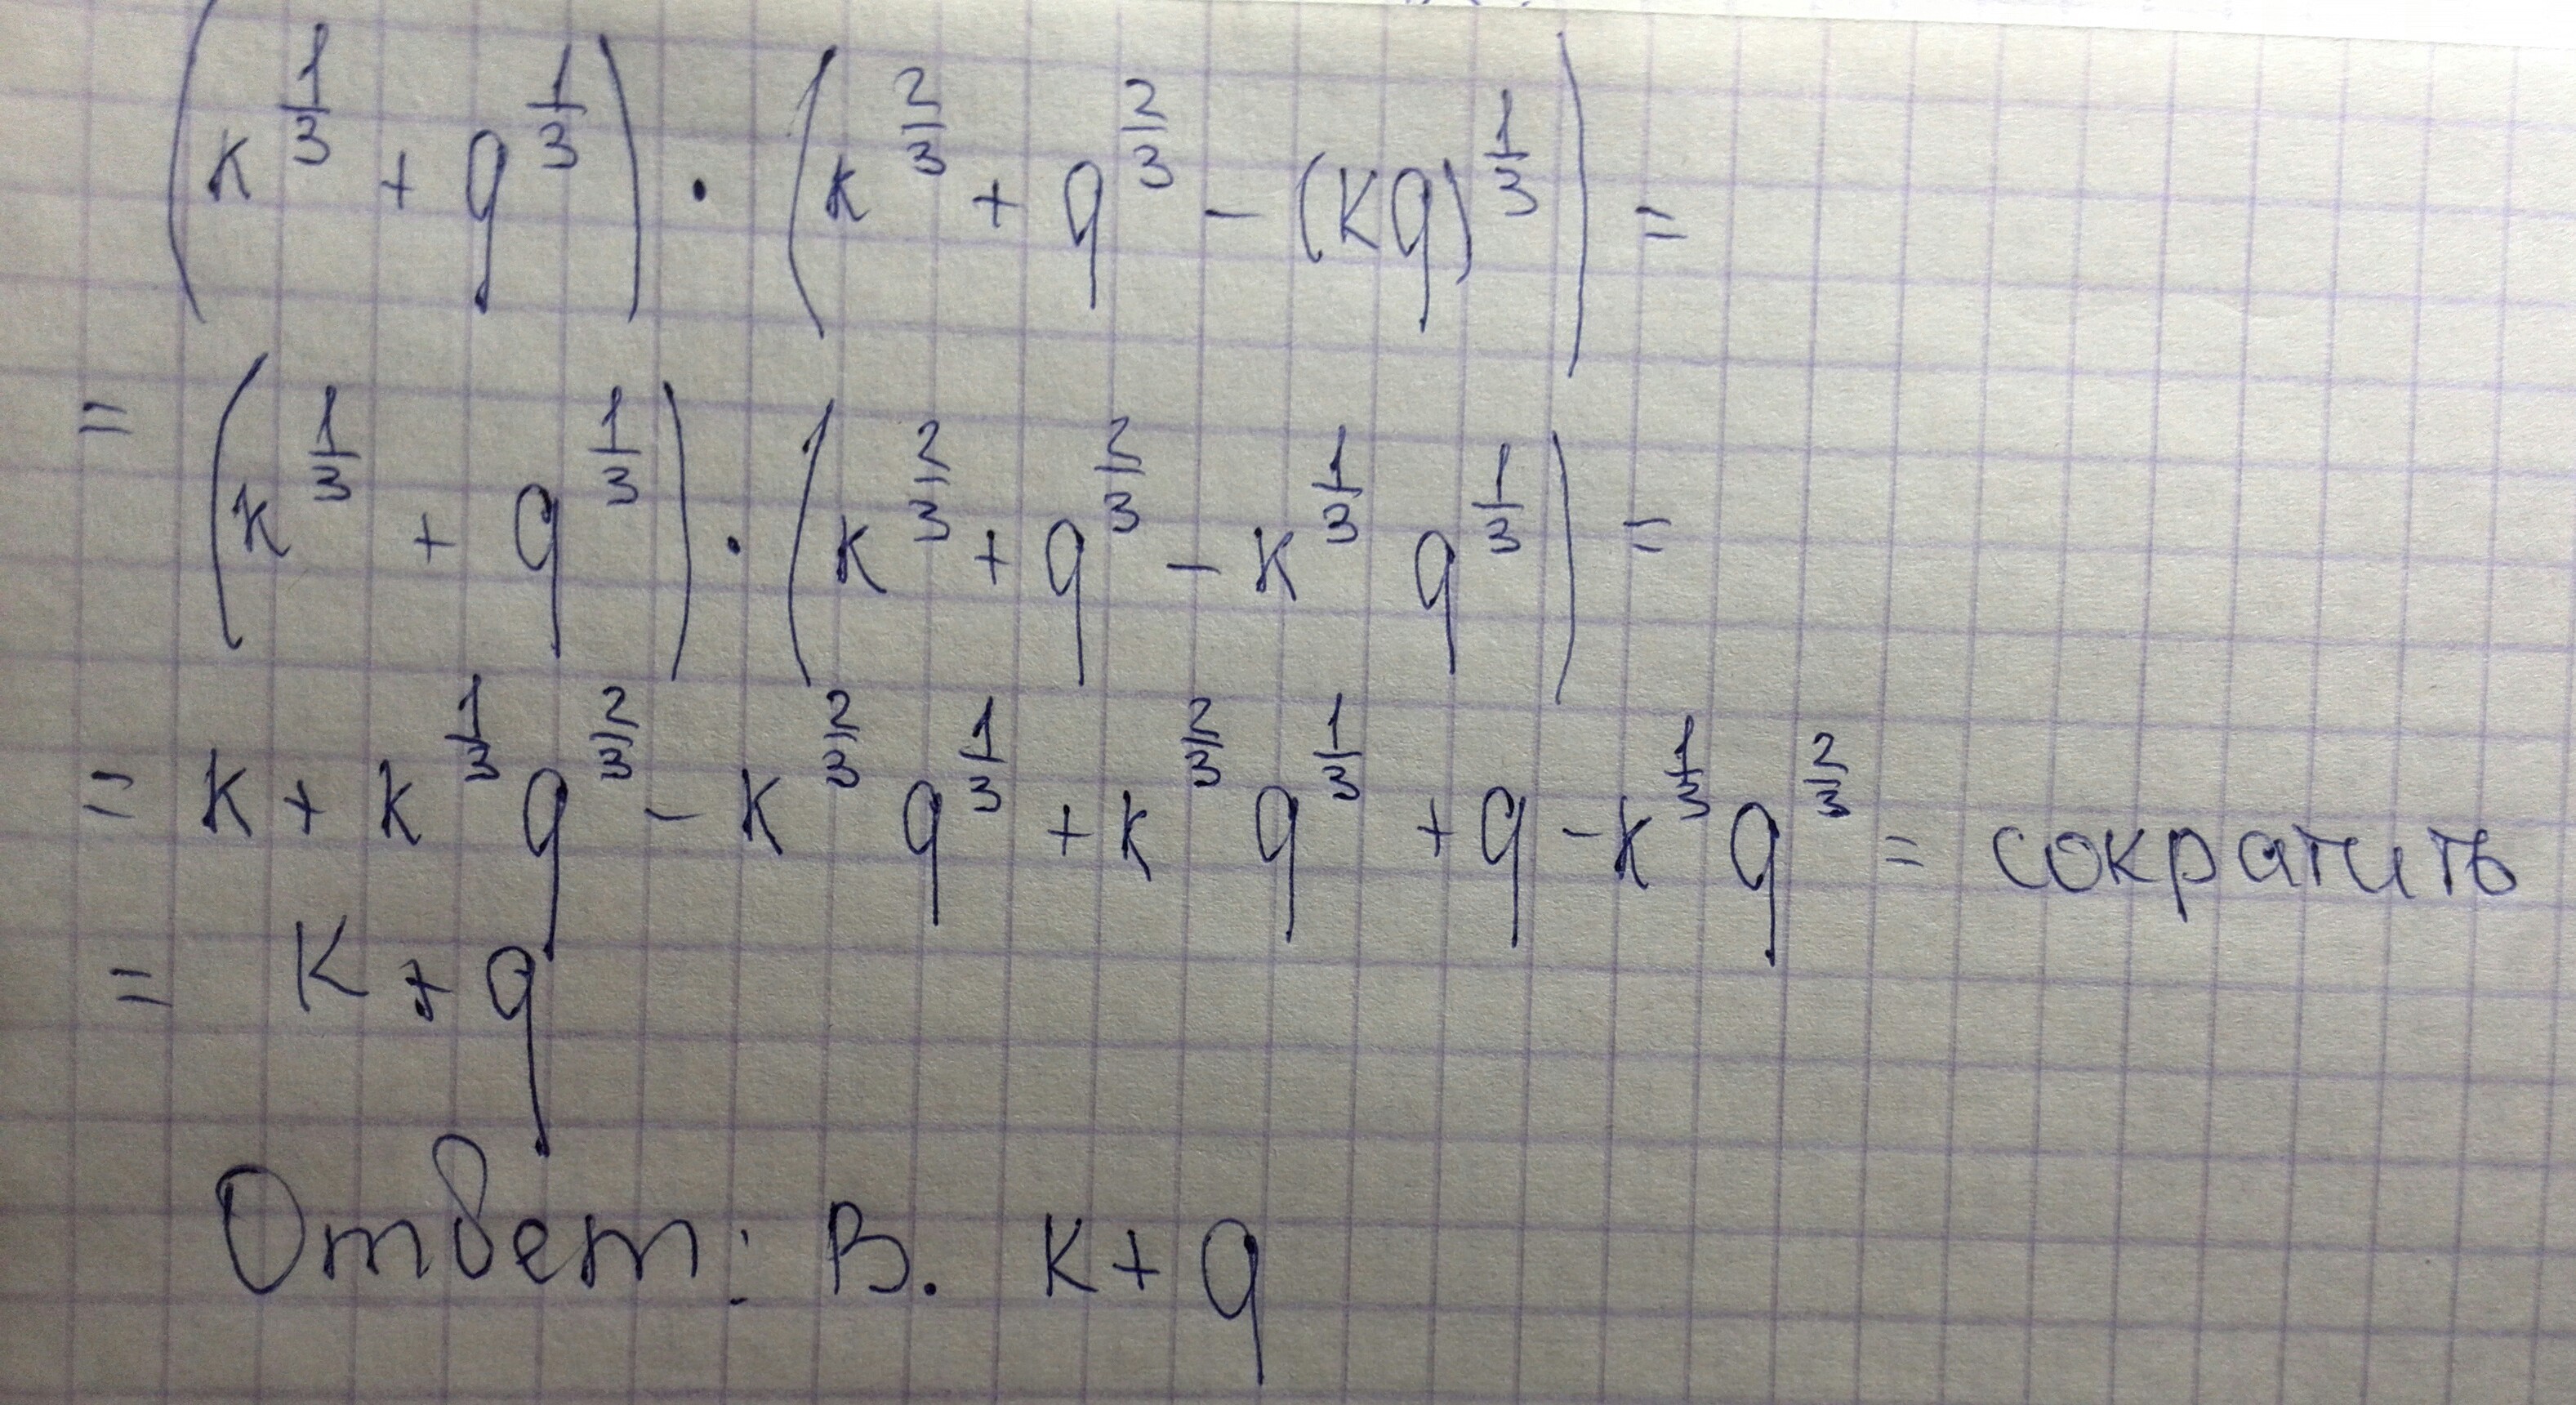 (k^{1/3} + q^{1/3}) · (k^{2/3} + q^{2/3} - (kq)^{1/3}) =
= (k^{1/3} + q^{1/3}) · (k^{2/3} + q^{2/3} - k^{1/3} q^{1/3}) =
= k + k^{1/3} q^{2/3} - k^{2/3} q^{1/3} + k^{2/3} q^{1/3} + q - k^{1/3} q^{2/3} = сократить
= k + q
Ответ: В. k + q